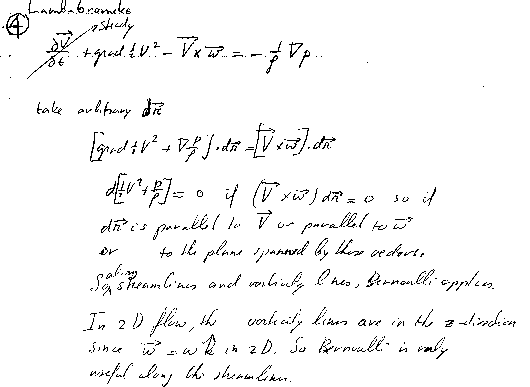 ④ Lamb-Gromeko
steady
∂V⃗/∂t + grad ½V² − V⃗ × ω⃗ = − 1/ρ ∇p
take arbitrary dr⃗
[grad ½V² + ∇ p/ρ] . dr⃗ = [V⃗ × ω⃗] . dr⃗
d[½V² + p/ρ] = 0 if (V⃗ × ω⃗) dr⃗ = 0 so if
dr⃗ is parallel to V⃗ or parallel to ω⃗
or to the plane spanned by these vectors.
So along streamlines and vorticity lines, Bernoulli applies.
In 2D flow, the vorticity lines are in the z-direction
since ω⃗ = ω k̂ in 2D. So Bernoulli is only
useful along the streamlines.